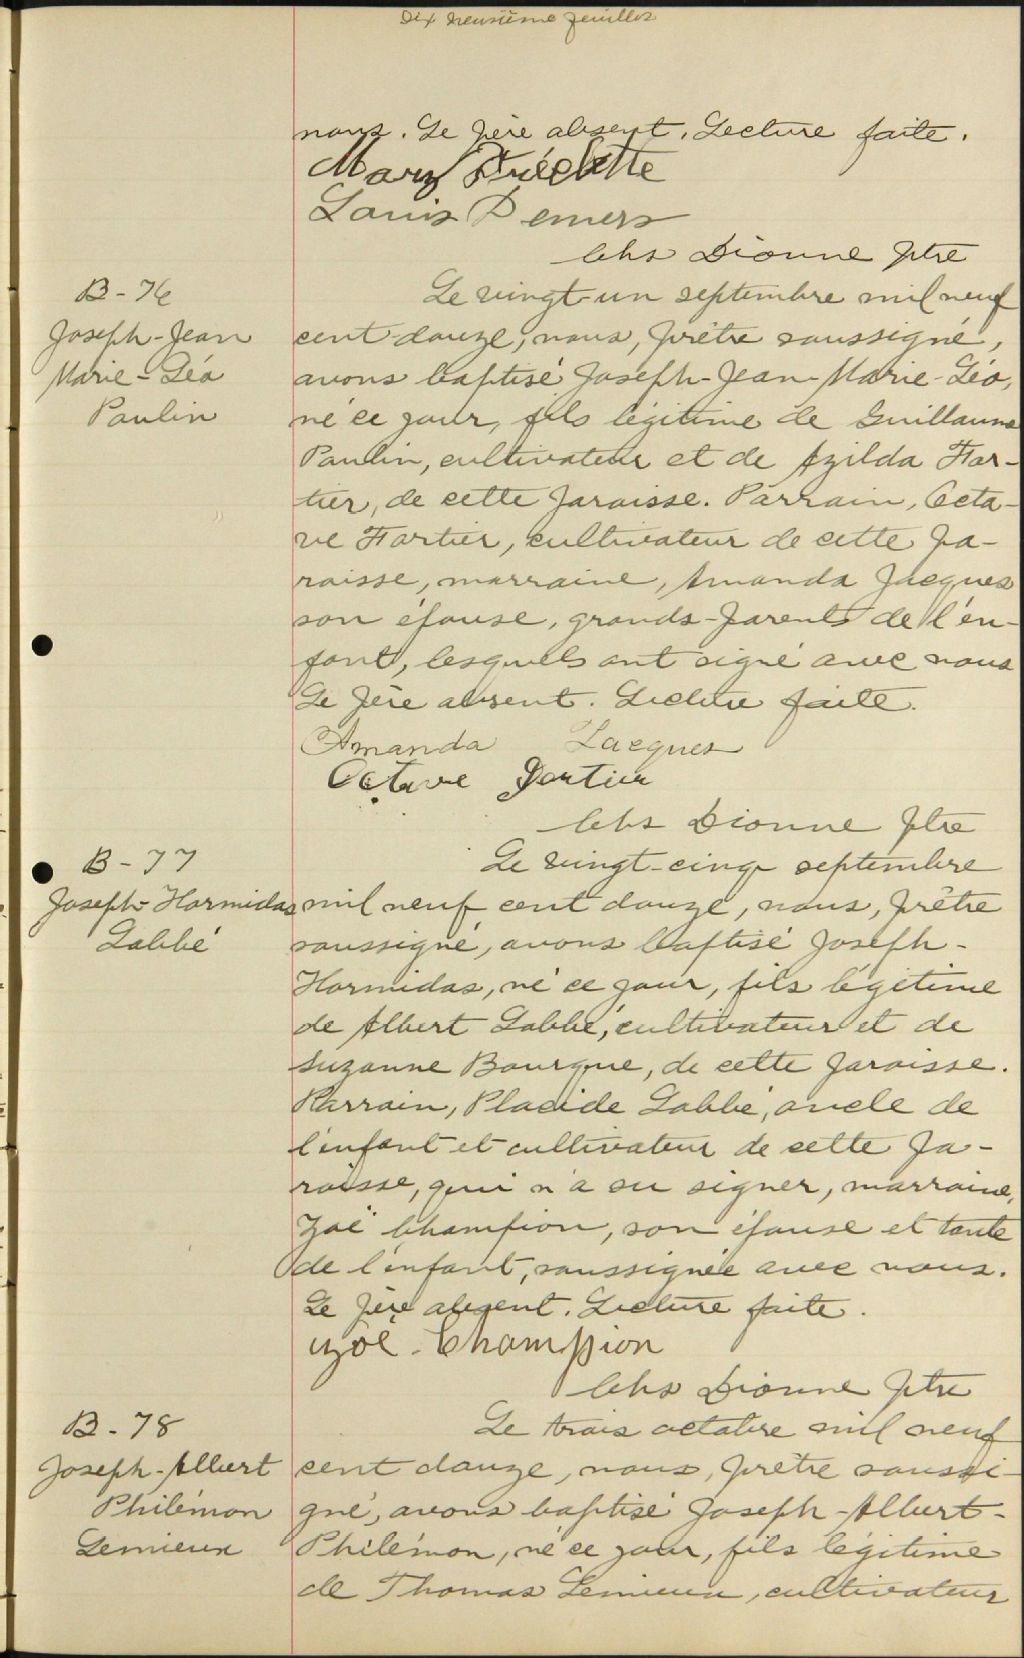 Dix neuvième feuillet
nous. Le père absent. Lecture faite.
Mary Fréchette
Louis Demers
Chs Dionne Ptre
B-76
Joseph-Jean
Marie-Léo
Paulin
Le vingt-un septembre mil neuf
cent douze, nous, prêtre soussigné,
avons baptisé Joseph-Jean-Marie-Léo,
né ce jour, fils légitime de Guillaume
Paulin, cultivateur et de Azilda For-
tier, de cette paroisse. Parrain, Octa-
ve Fortier, cultivateur de cette pa-
roisse, marraine, Amanda Jacques
son épouse, grands-parents de l'en-
fant, lesquels ont signé avec nous
Le père absent. Lecture faite.
Amanda Jacques
Octave Fortier
Chs Dionne Ptre
B-77
Joseph-Hormidas
Labbé
Le vingt-cinq septembre
mil neuf cent douze, nous, prêtre
soussigné, avons baptisé Joseph-
Hormidas, né ce jour, fils légitime
de Albert Labbé, cultivateur et de
Suzanne Bourque, de cette paroisse.
Parrain, Placide Labbé, oncle de
l'enfant et cultivateur de cette pa-
roisse, qui n'a su signer, marraine,
Zoé Champion, son épouse et tante
de l'enfant, soussignée avec nous.
Le père absent. Lecture faite.
Zoé Champion
Chs Dionne Ptre
B-78
Joseph-Albert
Philémon
Lemieux
Le trois octobre mil neuf
cent douze, nous, prêtre soussi-
gné, avons baptisé Joseph-Albert-
Philémon, né ce jour, fils légitime
de Thomas Lemieux, cultivateur